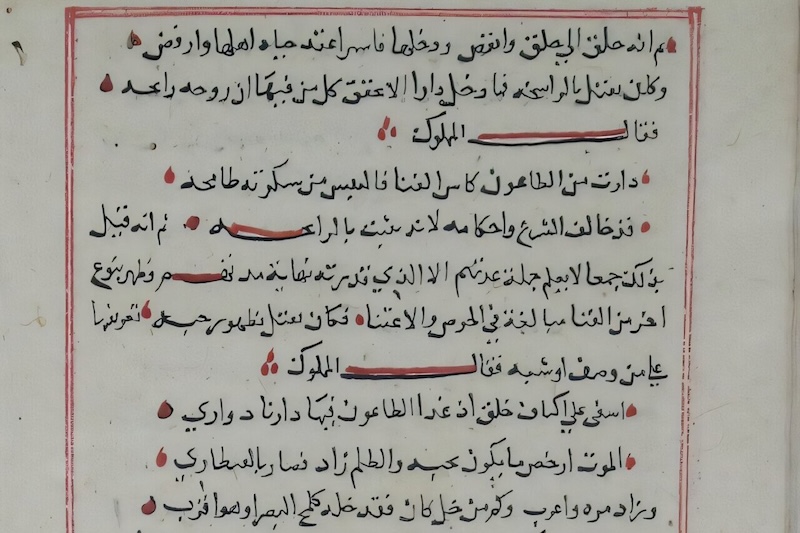 ثم انه حلق الي جلق وانفض ودخلها فاسرا عنه جياه اهلها وارفض
وكان يقتل بالرائحه فما دخل دارا الا عتق كل من فيها ان روحه رائحه
فقال المملوك
دارت من الطاعون كاس الفنا فالنفس من سكرته طامحه
قد خالف الشرع واحكامه لانه يثبت بالرائحه ثم انه قتل
بذلك جمعا لا يعلم جملة عدتهم الا الذي قدر نهاية مدتهم وظهر بنوع
اخر من الفنا مبالغة في الحرص والاعتنا فكان يقتل بظهور حبه
علي من وصف او شبه فقال المملوك
اسفي علي اكناف جلق اذ غدا الطاعون فيها دارنا دواري
الموت ارخص ما يكون بحبه والظلم زاد فصار بالقنطاري
وزاد مره واعرب وكم من خل كان فقد خله كلمح البصر او هو اقرب